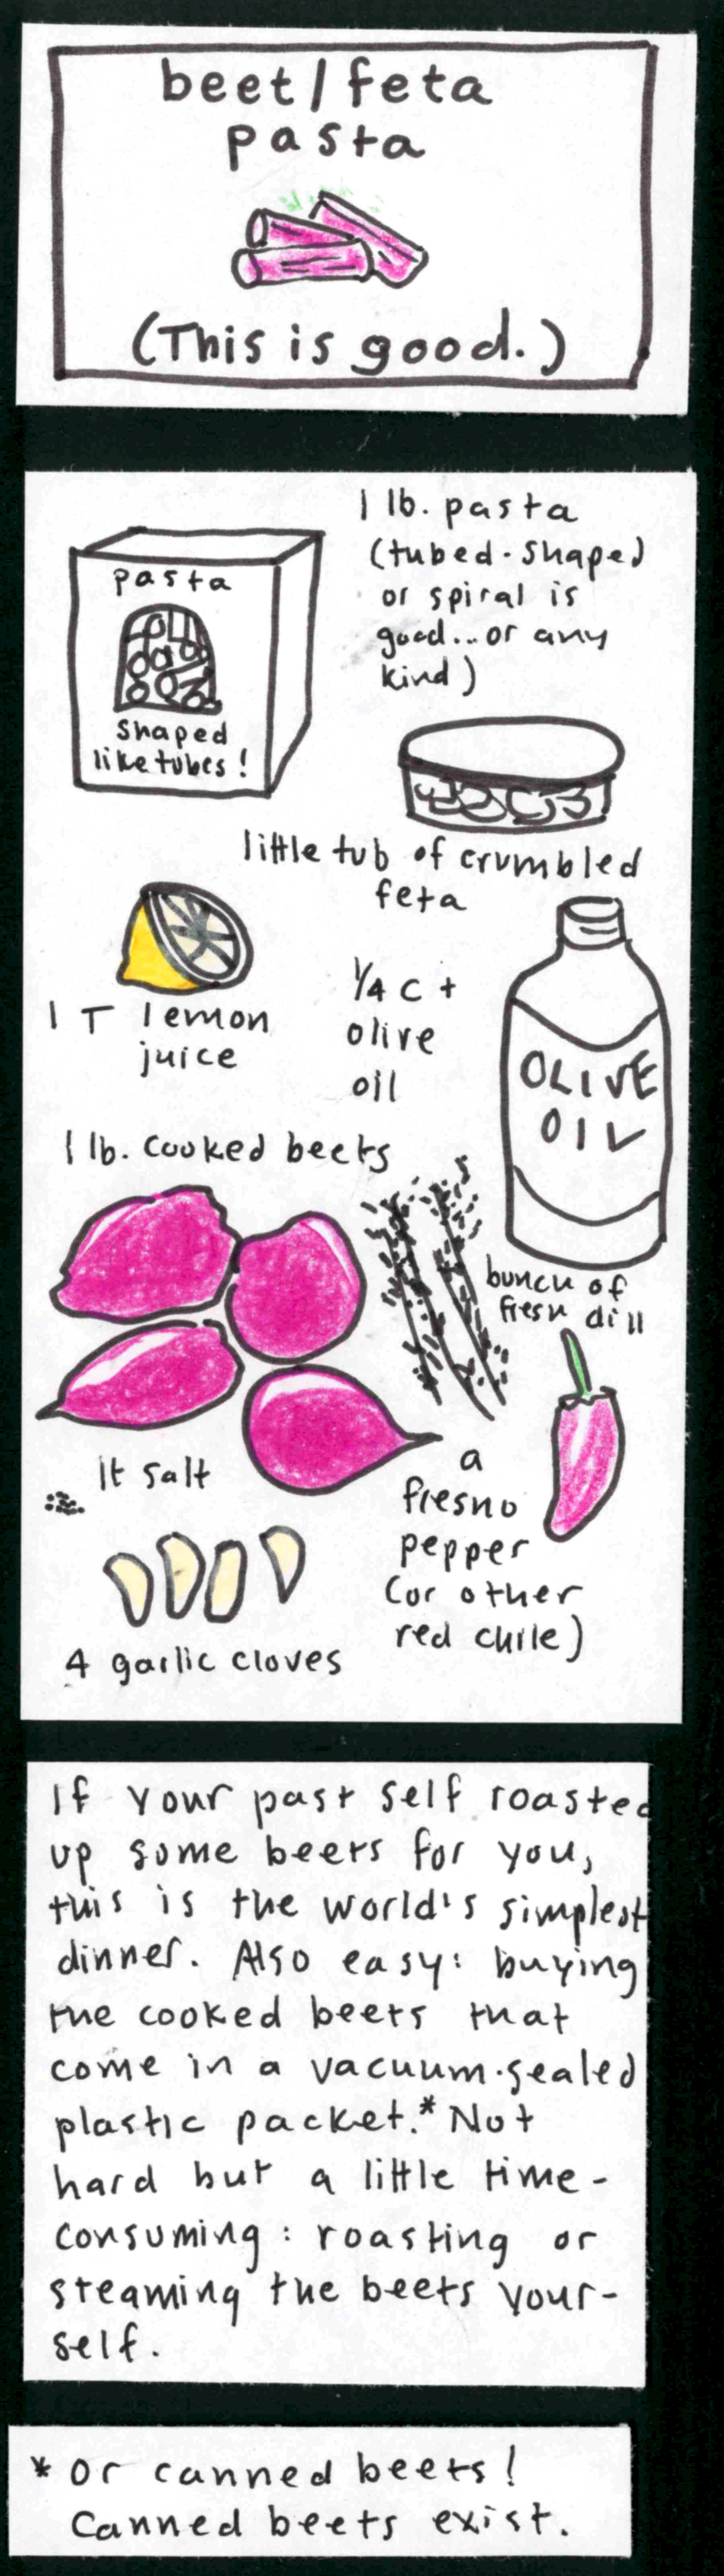 beet/feta
pasta
(This is good.)
1 lb. pasta
(tubed-shaped
or spiral is
good...or any
kind)
pasta
shaped
like tubes!
little tub of crumbled
feta
1 T lemon
juice
1/4 c +
olive
oil
OLIVE
OIL
1 lb. cooked beets
bunch of
fresh dill
1t salt
a
fresno
pepper
(or other
red chile)
4 garlic cloves
If your past self roasted
up some beets for you,
this is the world's simplest
dinner. Also easy: buying
the cooked beets that
come in a vacuum-sealed
plastic packet.* Not
hard but a little time-
consuming: roasting or
steaming the beets your-
self.
* or canned beets!
Canned beets exist.